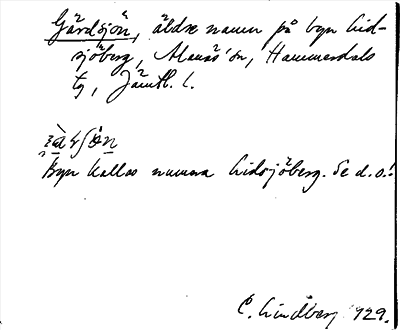 Gårdsjön, äldre namn på byn Lid-
sjöberg, Alanäs sn, Hammerdals
tg, Jämtl. l.
Byn kallas numera Lidsjöberg. Se d.o.!
C. Lindberg 1929.